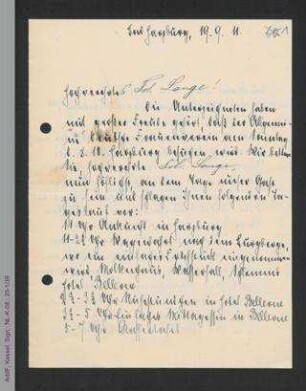 Bad Harzburg, 19. 9. 11.
Hochverehrtes Frl. Lange!
Die Unterzeichneten haben
mit großer Freude gehört, daß der Allgemei-
ne Deutsche Frauenverein am Sonntag
d. 8. 10. Harzburg besuchen wird. Wir bitten
Sie, hochverehrte Frl. Lange,
nun höflichst, an dem Tage unser Gast
zu sein und schlagen Ihnen folgenden Ta-
gesplan vor:
11 Uhr Ankunft in Harzburg
11-2½ Uhr Wagenfahrt nach dem Burgberge,
wo ein Frühstück eingenommen
wird, Molkenhaus, Wasserfall,
Hotel Bellevue
Uhr in Hotel Bellevue
5 Uhr Mittagessen in Bellevue
5-7 Uhr
AddF, Kassel, Sign.: NL-K-08